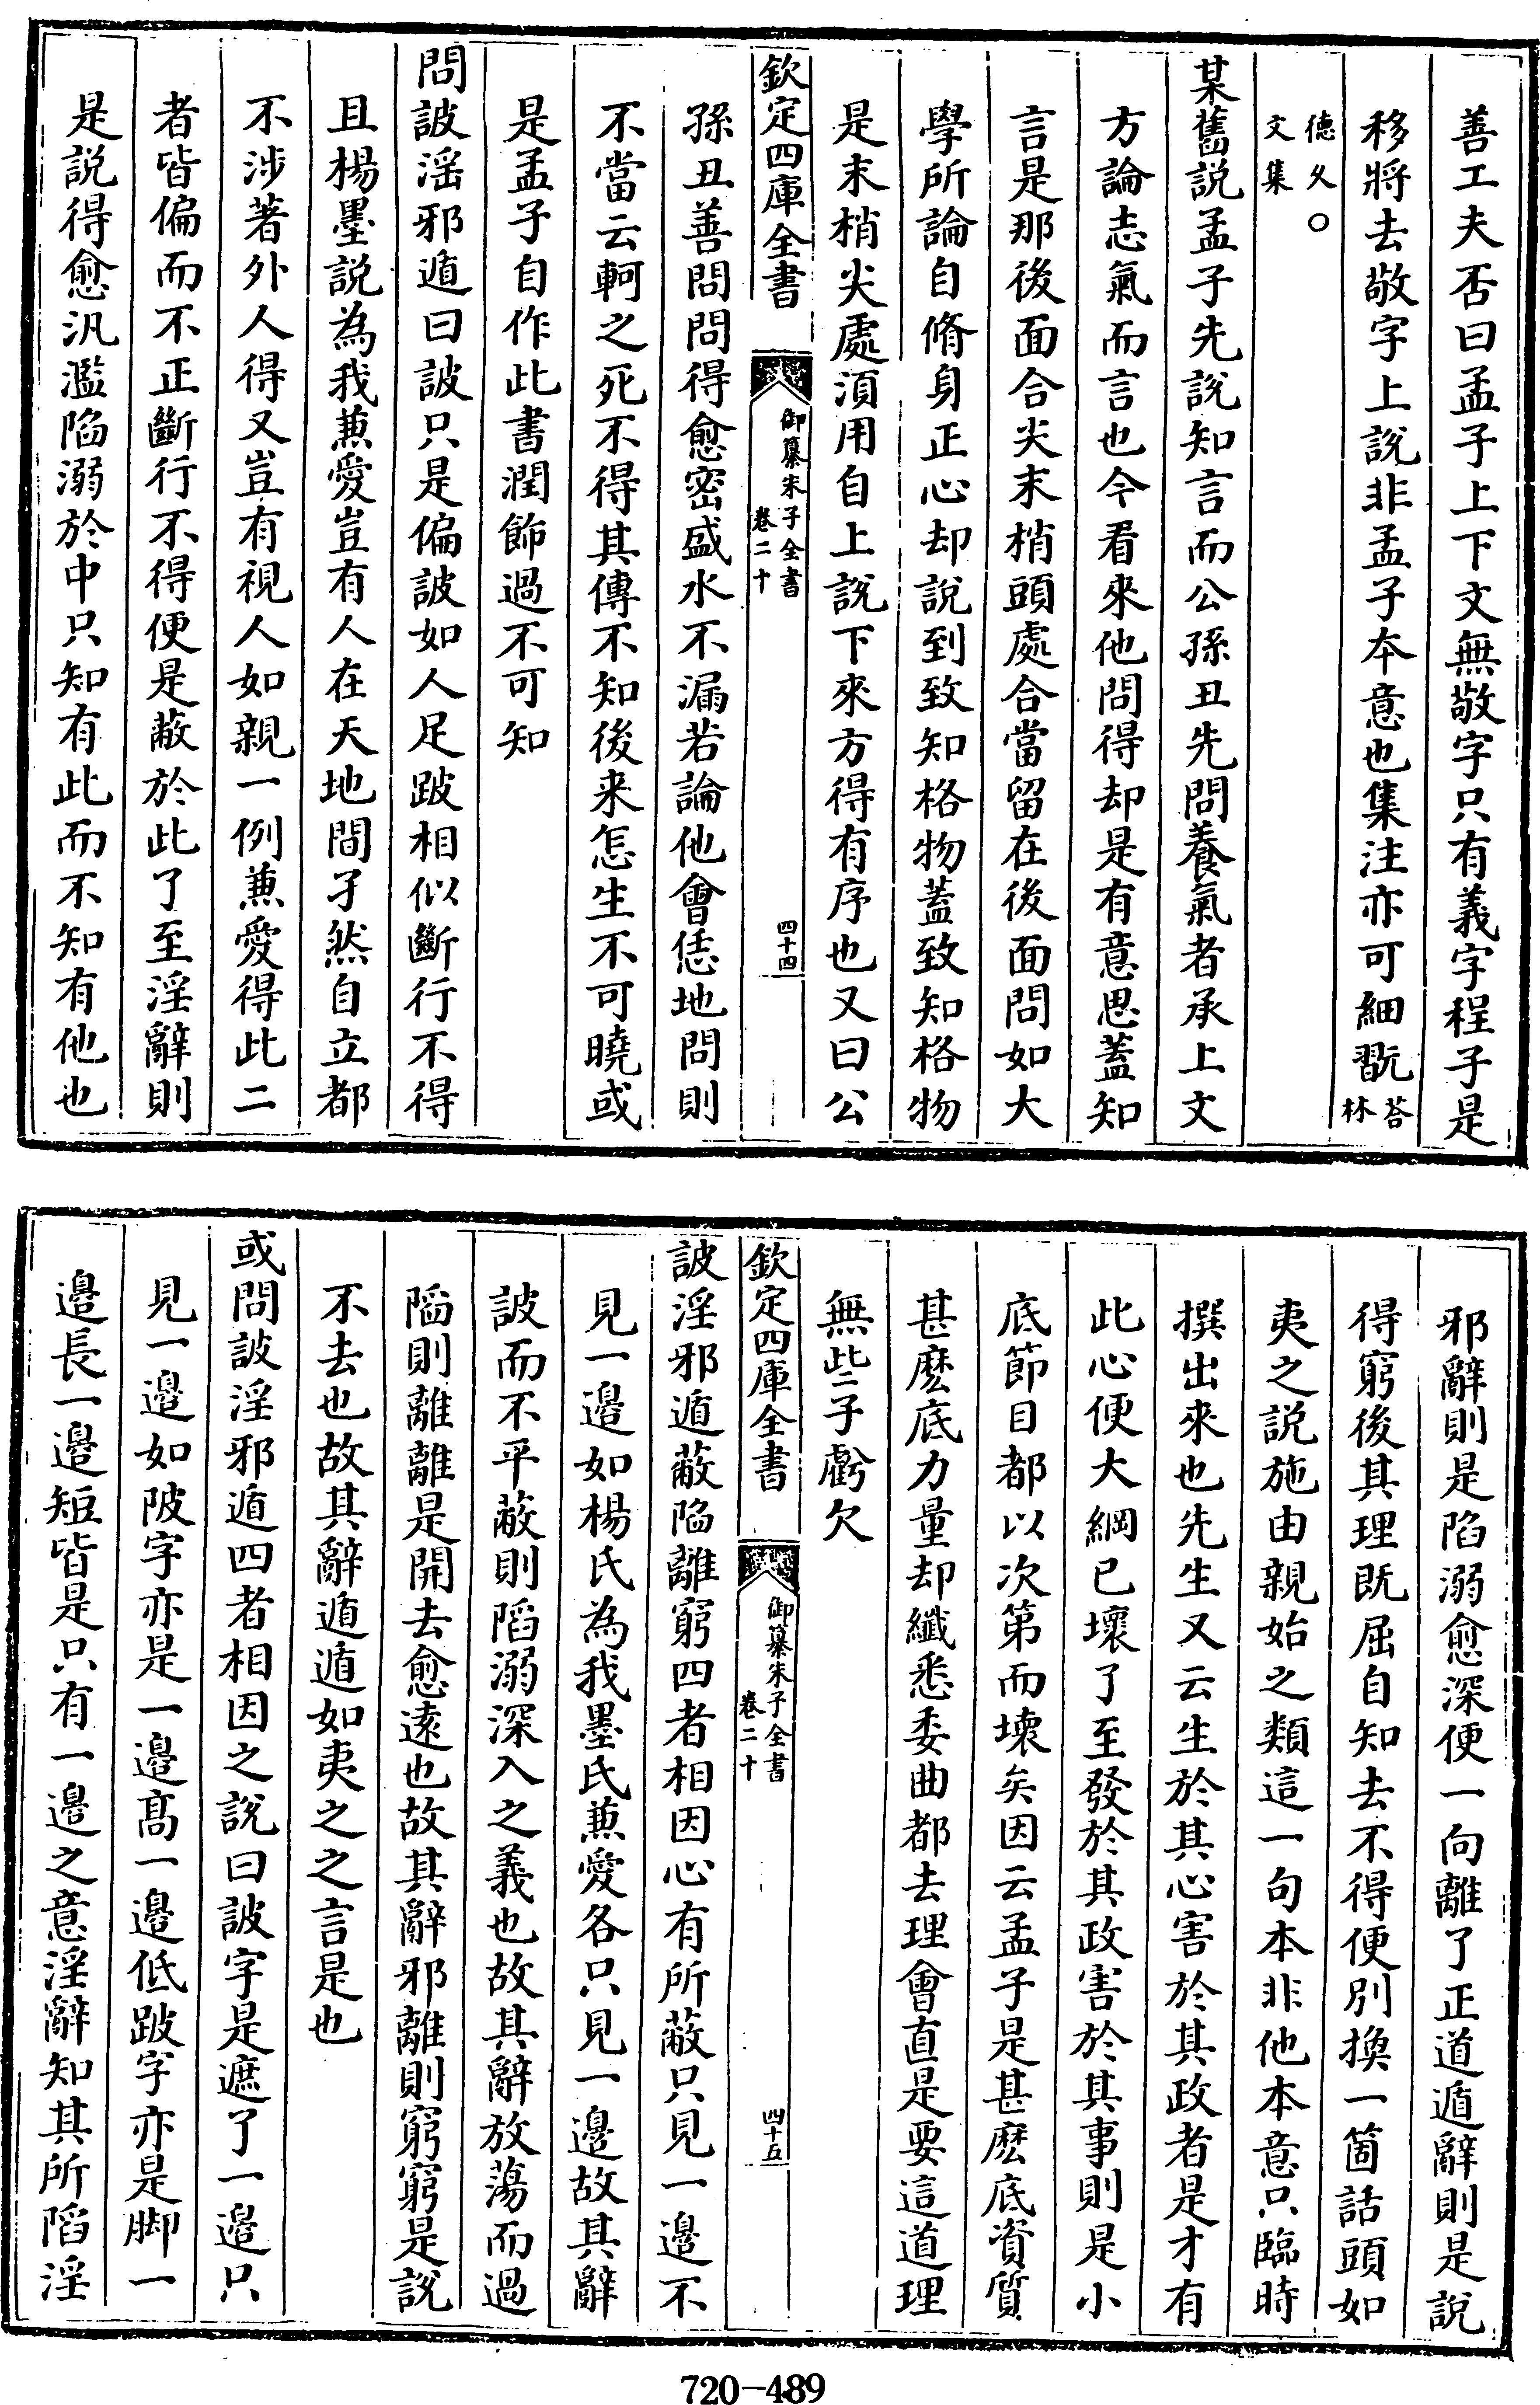 善工夫否曰孟子上下文無敬字只有義字程子是
移將去敬字上說非孟子本意也集注亦可細翫荅林
德久○文集
某舊説孟子先說知言而公孫丑先問養氣者承上文
方論志氣而言也今看來他問得却是有意思蓋知
言是那後面合尖末梢頭處合當留在後面問如大
學所論自脩身正心却説到致知格物蓋致知格物
是末梢尖處須用自上說下來方得有序也又曰公
欽定四庫全書 御纂朱子全書 卷二十 四十四
孫丑善問問得愈密盛水不漏若論他會恁地問則
不當云軻之死不得其傳不知後来怎生不可曉或
是孟子自作此書潤飾過不可知
問詖淫邪遁曰詖只是偏詖如人足跛相似斷行不得
且楊墨説為我兼愛豈有人在天地間孑然自立都
不涉著外人得又豈有視人如親一例兼愛得此二
者皆偏而不正斷行不得便是蔽於此了至淫辭則
是説得愈汎濫陷溺於中只知有此而不知有他也
邪辭則是陷溺愈深便一向離了正道遁辭則是説
得窮後其理既屈自知去不得便別換一箇話頭如
夷之説施由親始之類這一句本非他本意只臨時
撰出來也先生又云生於其心害於其政者是才有
此心便大綱已壞了至發於其政害於其事則是小
底節目都以次第而壞矣因云孟子是甚麽底資質
甚麽底力量却纖悉委曲都去理會直是要這道理
無些子虧欠
欽定四庫全書 御纂朱子全書 卷二十 四十五
詖淫邪遁蔽陷離窮四者相因心有所蔽只見一邊不
見一邊如楊氏為我墨氏兼愛各只見一邊故其辭
詖而不平蔽則陷溺深入之義也故其辭放蕩而過
陷則離離是開去愈遠也故其辭邪離則窮窮是說
不去也故其辭遁遁如夷之之言是也
或問詖淫邪遁四者相因之說曰詖字是遮了一邊只
見一邊如陂字亦是一邊髙一邊低跛字亦是脚一
邊長一邊短皆是只有一邊之意淫辭知其所陷淫
720-489